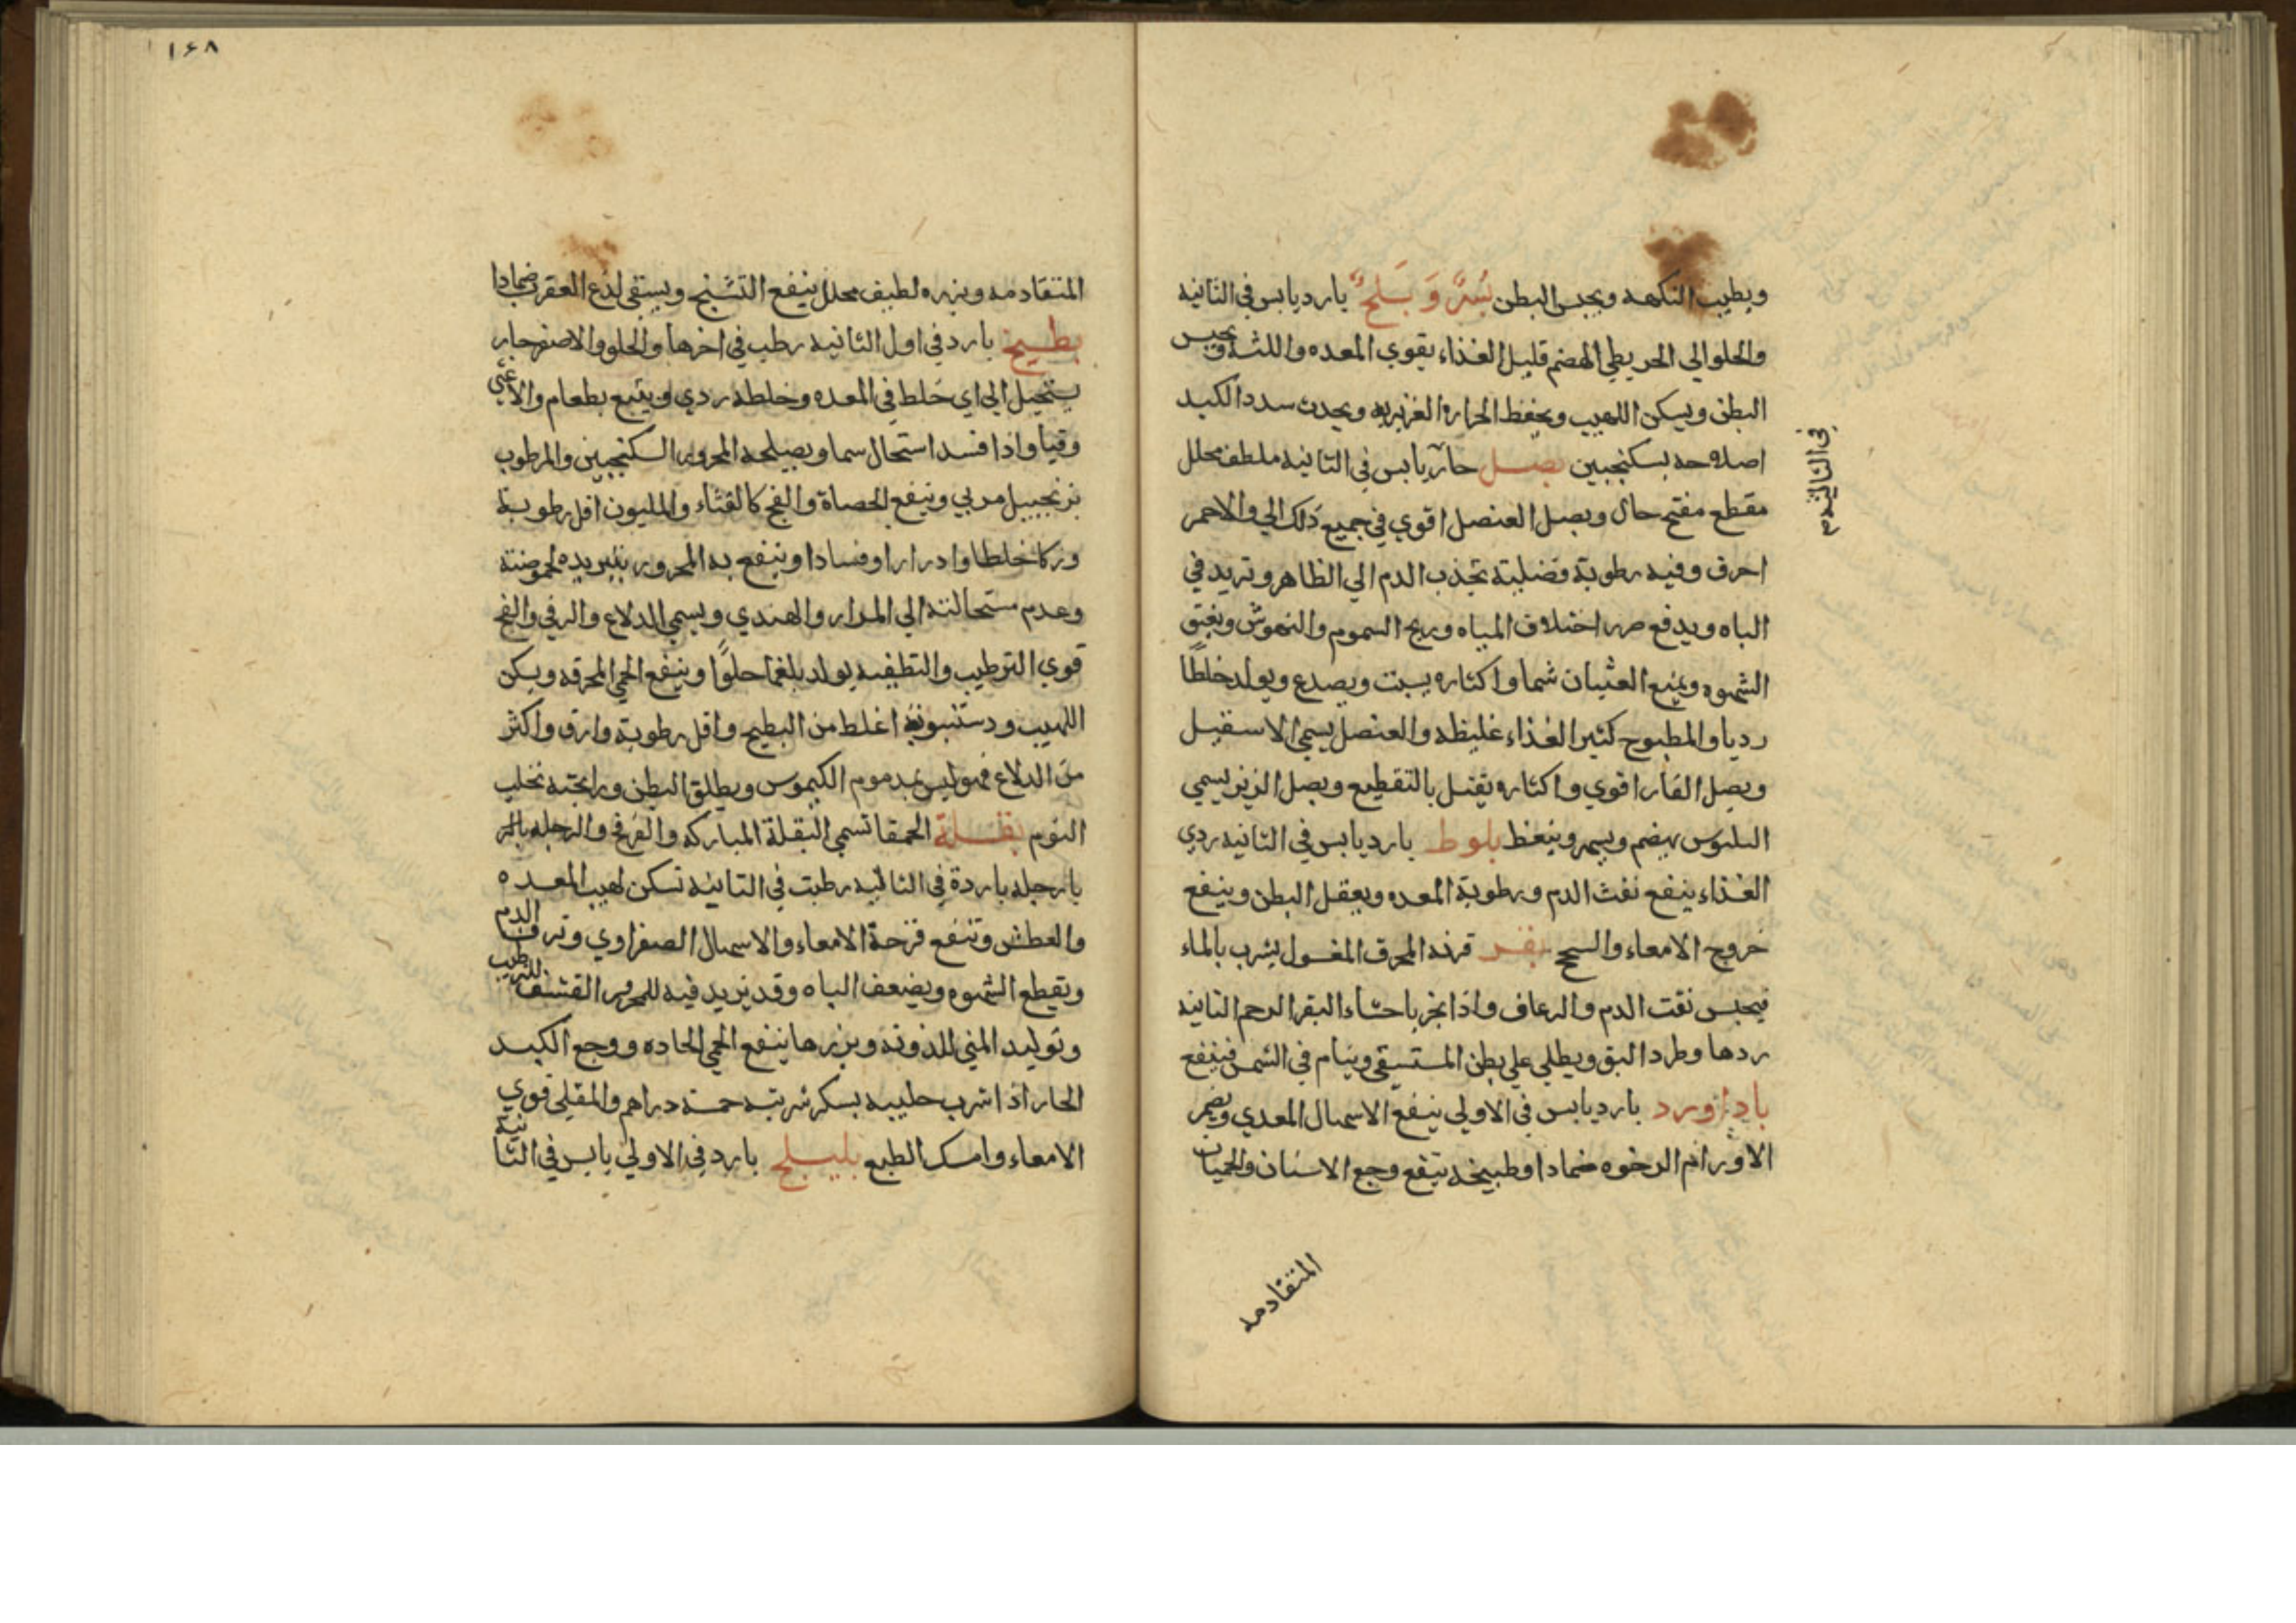 ويطيب النكهه ويحبس البطن بُسْرٌ وَ بَلَحٌ بارد يابس في الثانيه
والحلو الي الحر بطي الهضم قليل الغذاء يقوي المعده واللثه ويحبس
البطن ويسكن اللهيب ويحفظ الحراره الغزيريه ويحدث سدد الكبد
اصلاحه بسكنجبين بصل حار يابس في الثانيه ملطف محلل
في الثالثه م
مقطع مفتح حال وبصل العنصل اقوي في جميع ذلك الي والاحمر
احرق وفيه رطوبة فضليته تجذب الدم الي الظاهر وتزيد في
الباه ويدفع ضرر اختلاف المياه وريح السموم والنهوش ويفتق
الشهوه ويمنع الغثيان شما واكثاره يسبت ويصدع ويولد خلطًا
رديا والمطبوخ كثير الغذاء غليظه والعنصل يسمي الاسقيل
وبصل الفار اقوي واكثاره يقتل بالتقطيع وبصل الزيز يسمي
البلبوس يهضم ويسمر وينعظ بلوط بارد يابس في الثانيه ردي
الغذاء ينفع نفث الدم ورطوبة المعده ويعقل البطن وينفع
خروج الامعاء والسحج بقر قرنه المحرق المغسول يشرب بالماء
فيحبس نفث الدم والرعاف واذا بخر باحشاء البقر الرحم الناتيه
ردها وطرد البق ويطلي علي بطن المستسقي وينام في الشمس فينفع
باداورد بارد يابس في الاولي ينفع الاسهال المعدي ويضمر
الاورام الرخوه ضمادا وطبيخه ينفع وجع الاسنان والحميات
المتقادمه
١٦٨
المتقادمه وبزره لطيف محلل ينفع التشنج ويسقي لدغ العقرب ضمادا
بطيخ بارد في اول الثانيه رطب في اخرها والحلو والاصفر حار
يستحيل الي اي خلط في المعده وخلطه ردي ويتبع بطعام والا غثي
وقيا واذا فسد استحال سما ويصلحه المحرور السكنجبين والمرطوب
بزنجبيل مربي وينفع الحصاة والفج كالقثاء والمليون اقل رطوبة
وزكا خلطا وادرارا وفسادا وينفع به المحرور بتبريده لحموضته
وعدم مستحالته الي المرار والهندي ويسمي الدلاع والرفي والفج
قوي الترطيب والتطفيه يولد بلغما حلوًا وينفع الحمي المحرقه ويسكن
اللهيب ودستنبويه اغلظ من البطيخ واقل رطوبة وارق واكثر
من الدلاع فهو ليس بمذموم الكيموس ويطلق البطن ورايحته تجلب
النوم بقلة الحمقا تسمي البقلة المباركه والفرفخ والرجله بالبر
بارجله باردة في الثالثيه رطبت في الثانيه تسكن لهيب المعده
والعطش وتنفع قرحة الامعاء والاسهال الصفراوي ونزف الدم
ويقطع الشهوه ويضعف الباه وقد يزيد فيه للمحرور القشف للترطيب
وتوليد المني للذونه وبزرها ينفع الحمي الحاده ووجع الكبد
الحار اذا شرب حليبه بسكر شربته خمسة دراهم والمقلي قوي
الامعاء وامسك الطبع بليلج بارد في الاولي يابس في الثانية